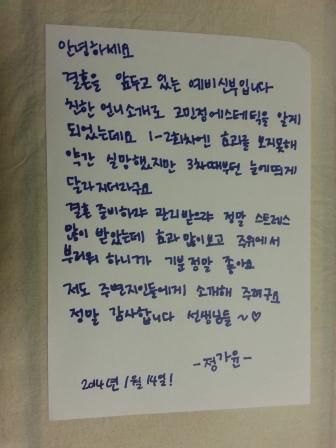 안녕하세요
결혼을 앞두고 있는 예비신부입니다
친한 언니소개로 고민정에스테틱을 알게
되었는데요 1-2회차엔 효과를 보지못해
약간 실망했지만 3차때부턴 눈에띄게
달라지더라구요
결혼 준비하랴 관리받으랴 정말 스트레스
많이 받았는데 효과많이보고 주위에서
부러워 하니까 기분정말 좋아요
저도 주변지인들에게 소개해 주려구요
정말 감사합니다 선생님들~♡
-정가윤-
2014년 1월 14일!